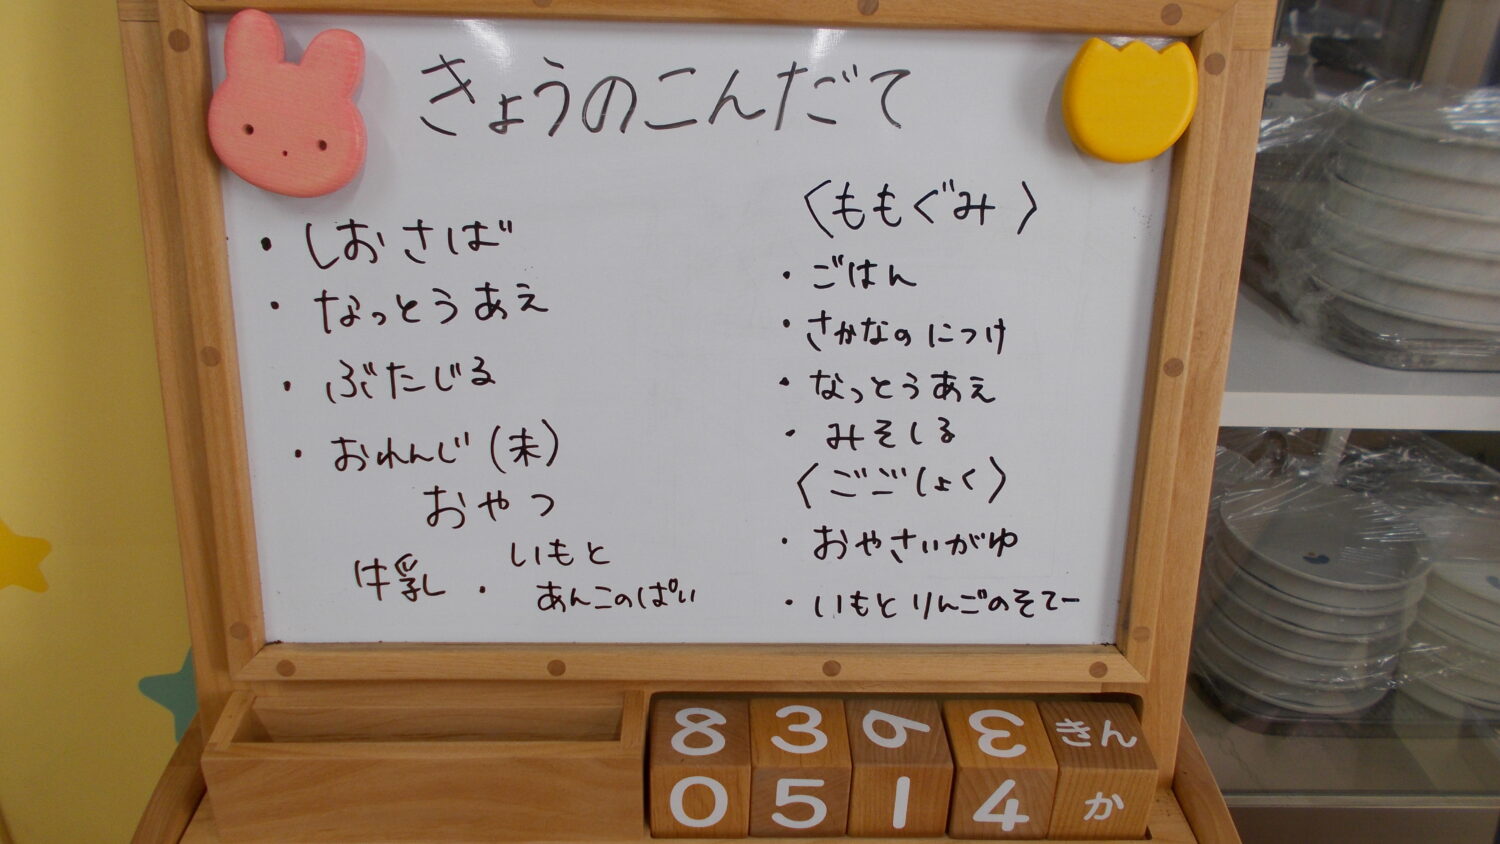 きょうのこんだて
・しおさば
・なっとうあえ
・ぶたじる
・おれんじ(未)
おやつ
牛乳・いもと
あんこのぱい
〈ももぐみ〉
・ごはん
・さかなのにつけ
・なっとうあえ
・みそしる
〈ごごしょく〉
・おやさいがゆ
・いもとりんごのそてー
8 3 6 3 きん
0 5 1 4 か